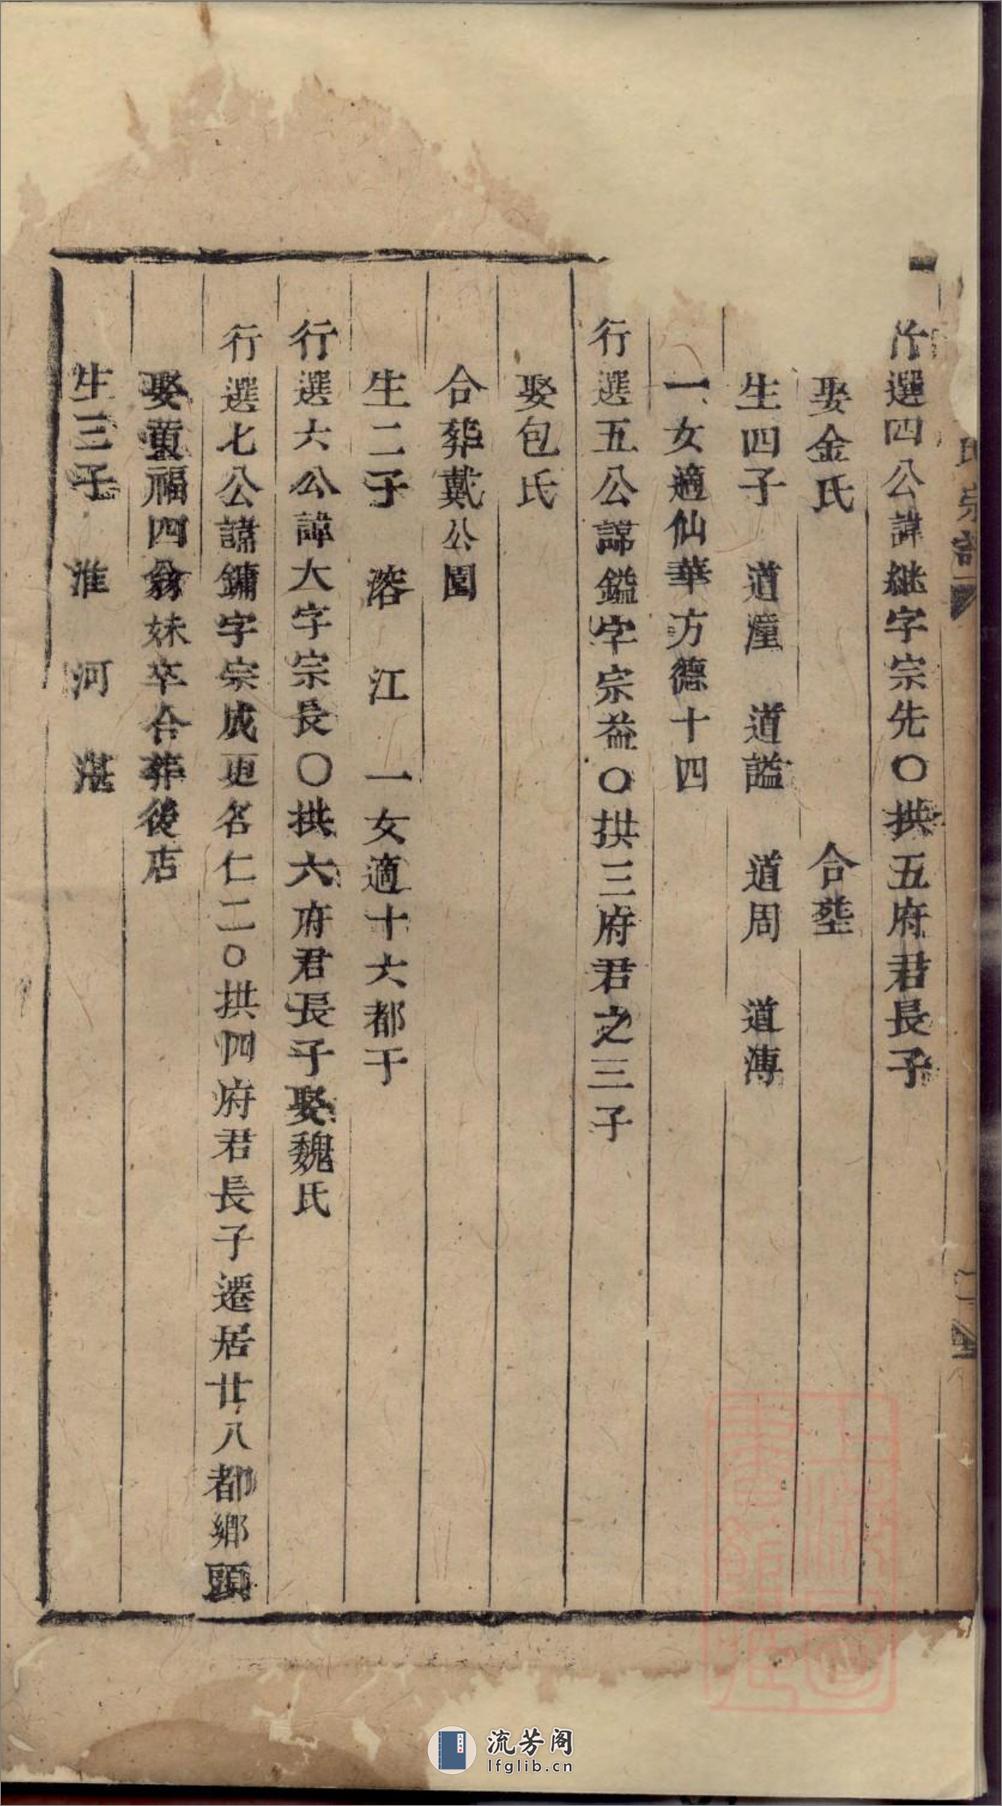 行選四公諱継字宗先〇拱五府君長子
娶金氏　合塟
生四子　道潼　道謚　道周　道溥
一女適仙華方德十四
行選五公諱鎰字宗益〇拱三府君之三子
娶包氏
合葬戴公園
生二子　溶　江　一女適十六都于
行選六公諱大字宗長〇拱六府君長子娶魏氏
行選七公諱鏞字宗成更名仁二〇拱四府君長子遷居廿八都鄉頭
娶黄福四翁妹卒合葬後店
生三子　淮　河　湛
氏宗譜
流芳阁
lfglib.cn